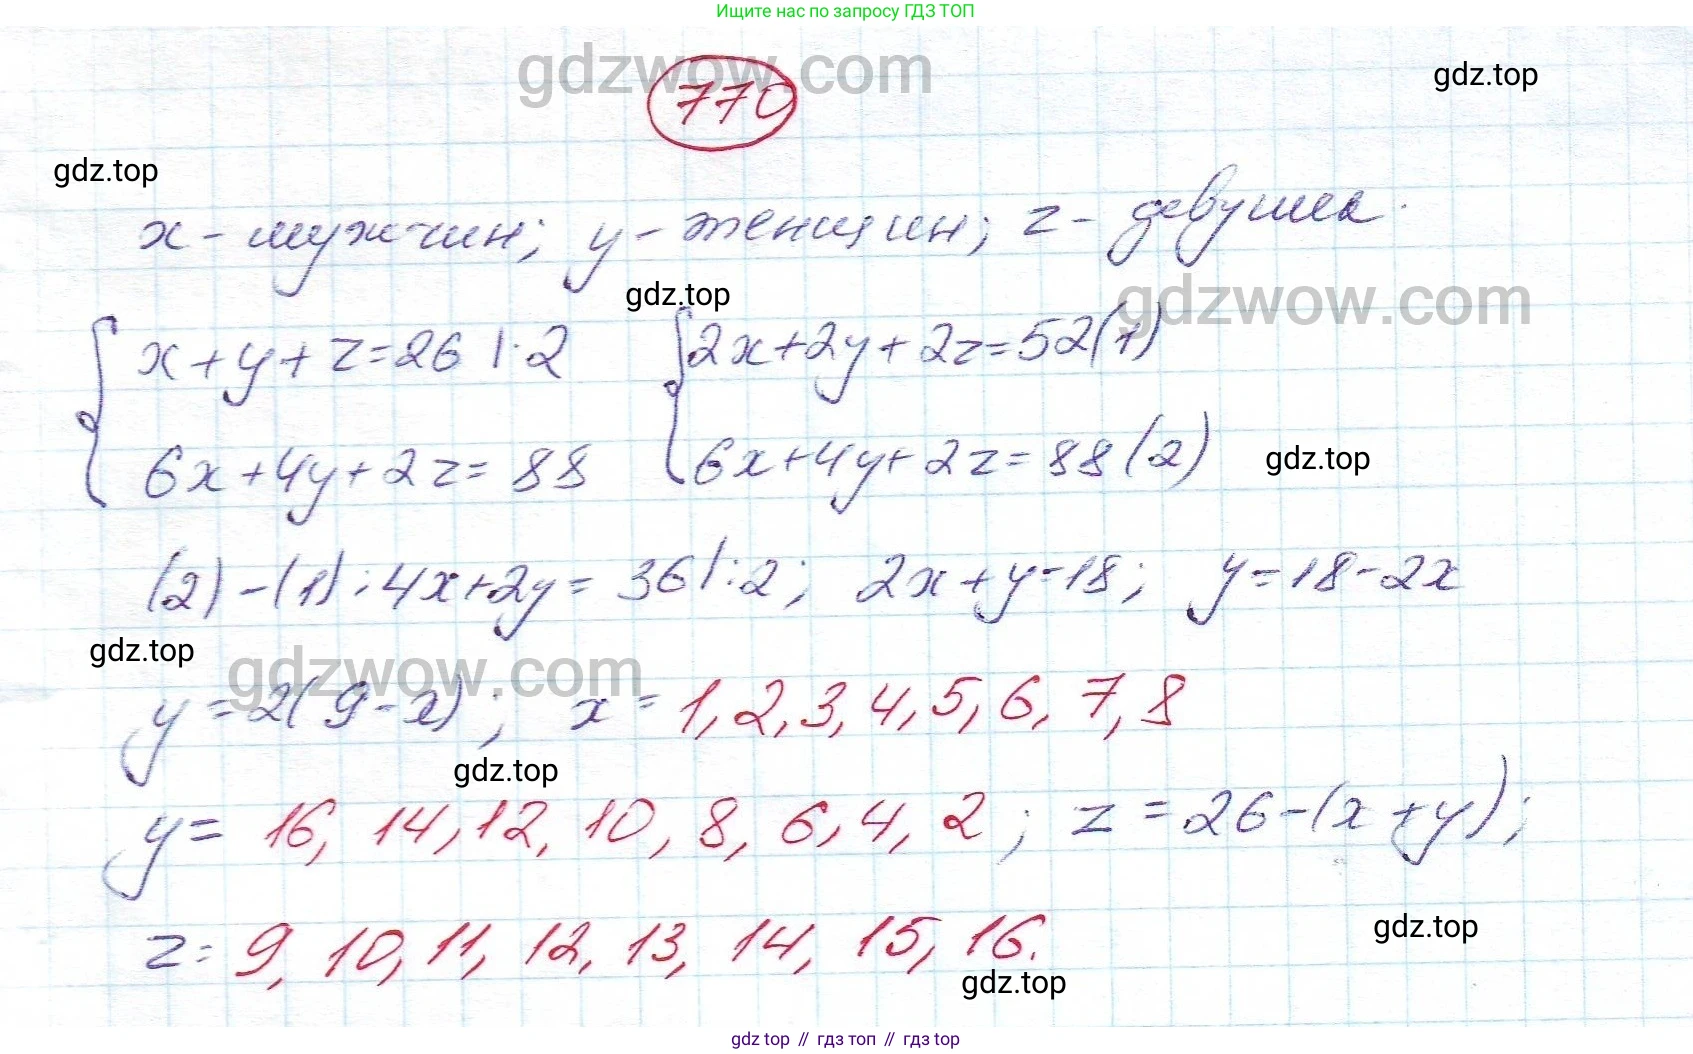 Ищите нас по запросу ГДЗ ТОП
gdzwow.com
770
gdz.top
gdz.top
x - мужчин; y - женщин; z - девушек.
gdz.top
gdzwow.com
{ x + y + z = 26 | · 2 { 2x + 2y + 2z = 52 (1)
6x + 4y + 2z = 88 6x + 4y + 2z = 88 (2)
gdz.top
(2) - (1): 4x + 2y = 36 | : 2; 2x + y = 18; y = 18 - 2x
gdz.top
gdzwow.com
y = 2(9 - x); x = 1, 2, 3, 4, 5, 6, 7, 8
gdz.top
y = 16, 14, 12, 10, 8, 6, 4, 2; z = 26 - (x + y);
gdz.top
z = 9, 10, 11, 12, 13, 14, 15, 16.
gdz.top
gdz top // гдз топ // гдз top